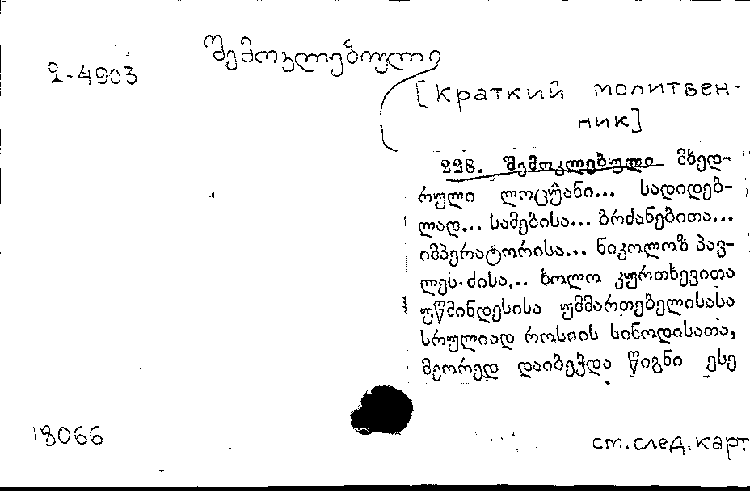 შემოკლებული
2-4903
[Краткий молитвен-
ник]
228. შემოკლებული მხედ-
რული ლოცვანი... სადიდებ-
ლად... სამებისა... ბრძანებითა...
იმპერატორისა... ნიკოლოზ პავ-
ლეს-ძისა,.. ხოლო კურთხევითა
უწმინდესისა უმმართებელისასა
სრულიად როსიის სინოდისათა,
მეორედ დაიბეჭდა წიგნი ესე
18066
см.след.карт